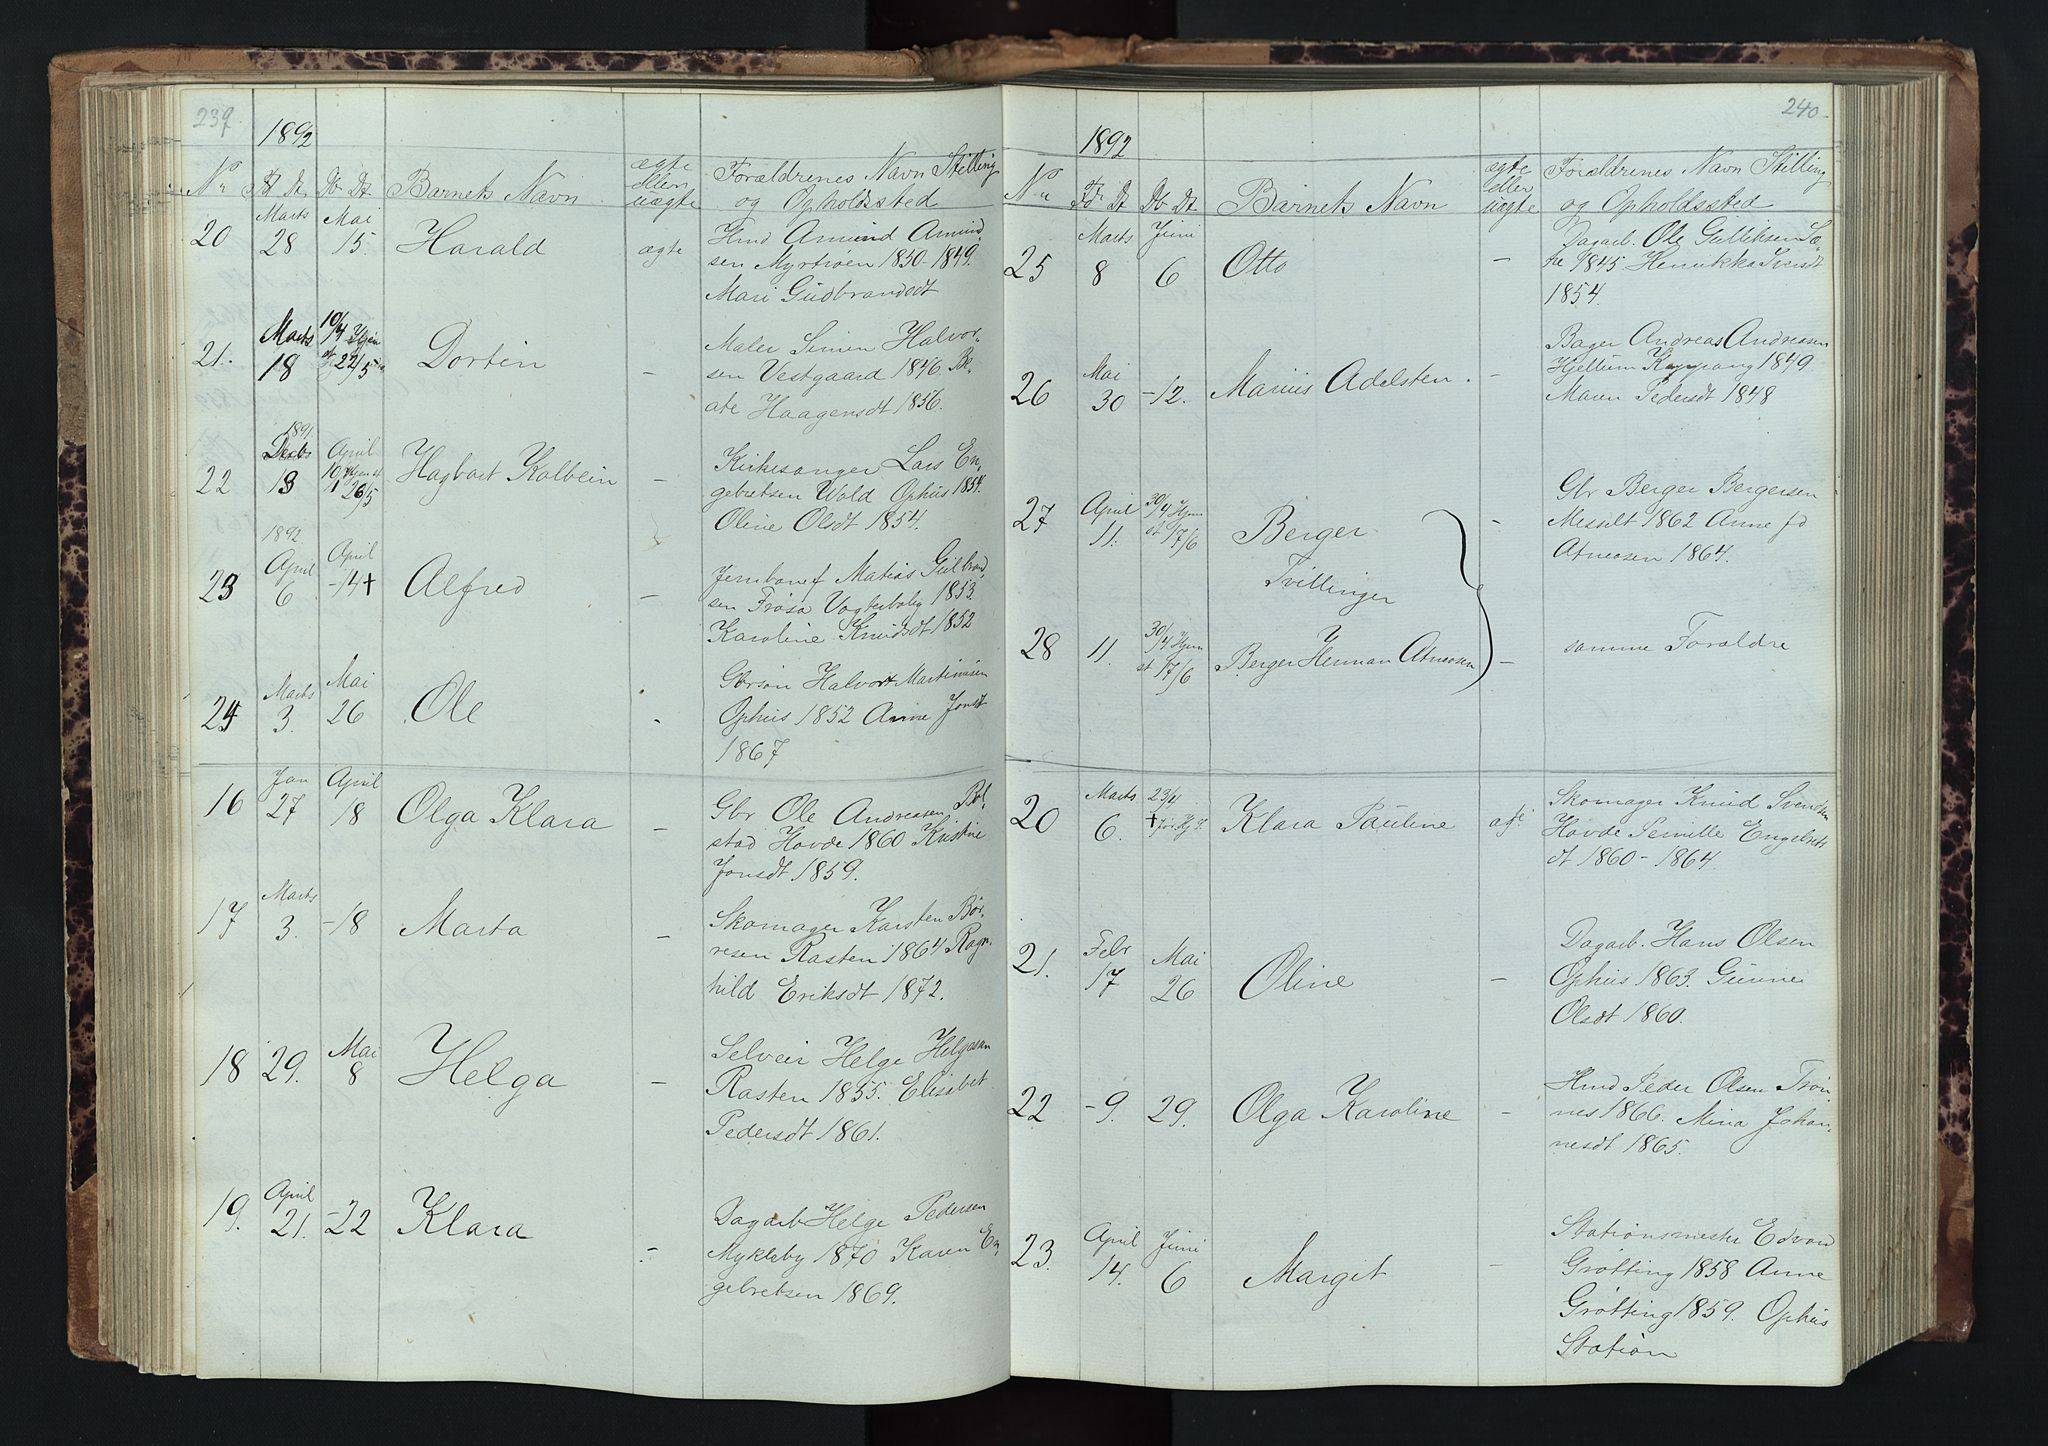 239.
1892
No Fd Dt Db Dt Barnets Navn ægte eller uægte Forældrenes Navn Stilling og Opholdssted
20 Marts 28 Mai 15. Harald ægte Hmd Amund Amund-
sen Myrtroen 1850-1849.
Mari Gudbrandsdt
21. Marts 18 10/4 Hjem st 22/5 Dortin – Maler Simen Halvor-
sen Vestgaard 1846 Be-
ate Haagensdt 1856.
22 1891 Decbr 13 April 10 Hjem st 26/5 Hagbart Kolbein – Kirkesanger Lars En-
gebretsen Wold Ophus 1854.
Oline Olsdt 1854.
1892
23 April 6 April -14+ Alfred – Jernbanef Matias Gulbrand-
sen Frøsa Vogterbolig 1853.
Karoline Knudsdt 1852
24 Marts 3. Mai 26 Ole - Gbrsøn Halvor Martinusen
Ophus 1852 Anne Jonsdt
1867
16 Jan 27 April 18 Olga Klara – Gbr Ole Andreasen Bol-
stad Hovde 1860 Kristine
Jonsdt 1859.
17 Marts 3. -18 Marta – Skomager Karsten Bør-
resen Rasten 1864 Ragn-
hild Eriksdt 1872.
18 29. Mai 8 Helga – Selveier Helge Helgesen
Rasten 1855. Elisabet
Pedersdt 1861.
19. April 21. -22 Klara – Dagarb Helge Pedersen
Mykleby 1870 Karen En-
gebretsen 1869.
240.
1892
No Fd Dt Db Dt Barnets Navn ægte eller uægte Forældrenes Navn Stilling og Opholdssted
25 Marts 8 Juni 6 Otto – Dagarb. Ole Gulliksen Sæ-
tre 1845 Henrikka Iversdt
1854.
26 Mai 30 -12. Marius Adelsten. – Bager Andreas Andreasen
Hjellum Koppang 1849
Maren Pedersdt 1848
27 April 11. 30/4 Hjem st 17/6 Berger – Gbr Berger Bergersen
Messelt 1862 Anne fd
Atneosen 1864.
Tvillinger
28 11. 30/4 Hjem st 17/6 Berger Herman Atneosen – samme Forældre
20 Marts 6. 23/4 + Klara Pauline ægt. Skomager Knud Svendsen
Hovde Pernille Engebrets
dt 1860-1864.
21. Febr 17 Mai 26 Oline – Dagarb. Hans Olsen
Ophus 1863. Gunne
Olsdt 1860.
22 -9. 29. Olga Karoline – Hmd Peder Olsen Trøn-
nes 1866. Mina Johan-
nesdt 1865.
23. April 14. Juni 6 Margit – Stationsmester Edvard
Grøtting 1858 Anne
Grøtting 1859. Ophus
Station